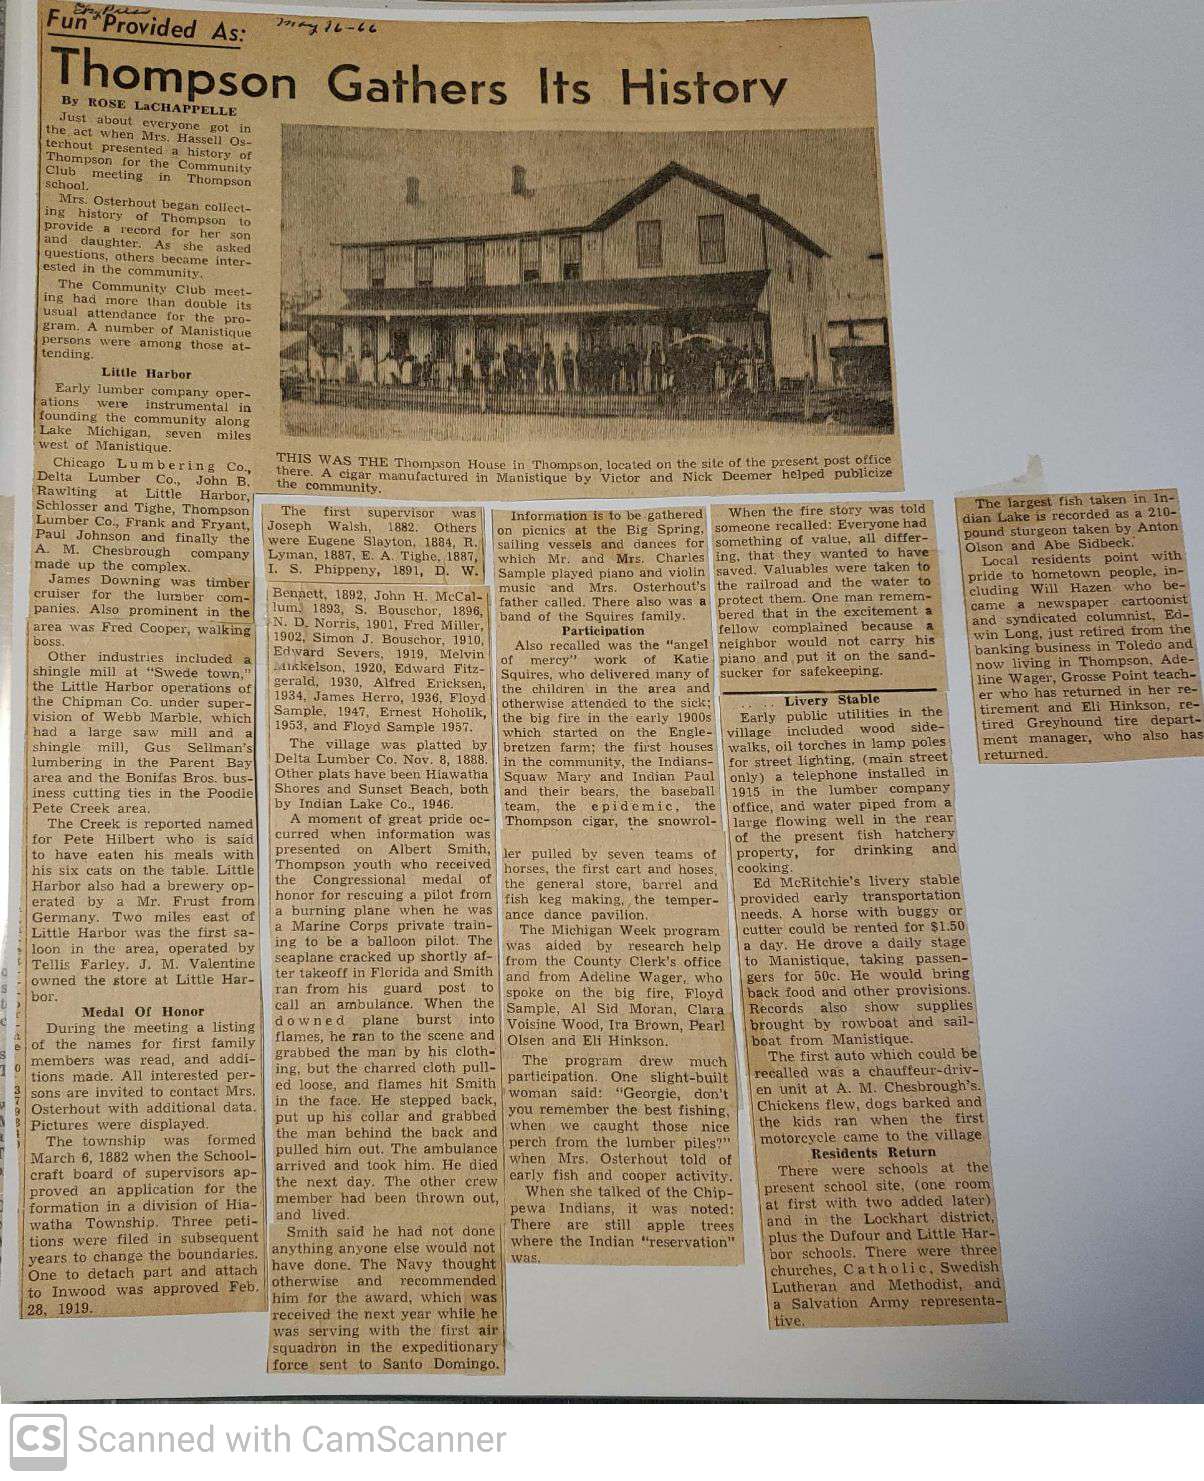 Press
May 26-66
Fun Provided As:
Thompson Gathers Its History
By ROSE LaCHAPPELLE
Just about everyone got in
the act when Mrs. Hassell Os-
terhout presented a history of
Thompson for the Community
Club meeting in Thompson
school.
Mrs. Osterhout began collect-
ing history of Thompson to
provide a record for her son
and daughter. As she asked
questions, others became inter-
ested in the community.
The Community Club meet-
ing had more than double its
usual attendance for the pro-
gram. A number of Manistique
persons were among those at-
tending.
Little Harbor
Early lumber company oper-
ations were instrumental in
founding the community along
Lake Michigan, seven miles
west of Manistique.
Chicago Lumbering Co.,
Delta Lumber Co., John B.
Rawlting at Little Harbor,
Schlosser and Tighe, Thompson
Lumber Co., Frank and Fryant,
Paul Johnson and finally the
A. M. Chesbrough company
made up the complex.
James Downing was timber
cruiser for the lumber com-
panies. Also prominent in the
area was Fred Cooper, walking
boss.
Other industries included a
shingle mill at "Swede town,"
the Little Harbor operations of
the Chipman Co. under super-
vision of Webb Marble, which
had a large saw mill and a
shingle mill, Gus Sellman's
lumbering in the Parent Bay
area and the Bonifas Bros. bus-
iness cutting ties in the Poodle
Pete Creek area.
The Creek is reported named
for Pete Hilbert who is said
to have eaten his meals with
his six cats on the table. Little
Harbor also had a brewery op-
erated by a Mr. Frust from
Germany. Two miles east of
Little Harbor was the first sa-
loon in the area, operated by
Tellis Farley. J. M. Valentine
owned the store at Little Har-
bor.
Medal Of Honor
During the meeting a listing
of the names for first family
members was read, and addi-
tions made. All interested per-
sons are invited to contact Mrs.
Osterhout with additional data.
Pictures were displayed.
The township was formed
March 6, 1882 when the School-
craft board of supervisors ap-
proved an application for the
formation in a division of Hia-
watha Township. Three peti-
tions were filed in subsequent
years to change the boundaries.
One to detach part and attach
to Inwood was approved Feb.
28, 1919.
THIS WAS THE Thompson House in Thompson, located on the site of the present post office
there. A cigar manufactured in Manistique by Victor and Nick Deemer helped publicize
the community.
The first supervisor was
Joseph Walsh, 1882. Others
were Eugene Slayton, 1884, R.
Lyman, 1887, E. A. Tighe, 1887,
I. S. Phippeny, 1891, D. W.
Bennett, 1892, John H. McCal-
lum, 1893, S. Bouschor, 1896,
N. D. Norris, 1901, Fred Miller,
1902, Simon J. Bouschor, 1910,
Edward Severs, 1919, Melvin
Mikkelson, 1920, Edward Fitz-
gerald, 1930, Alfred Ericksen,
1934, James Herro, 1936, Floyd
Sample, 1947, Ernest Hoholik,
1953, and Floyd Sample 1957.
The village was platted by
Delta Lumber Co. Nov. 8, 1888.
Other plats have been Hiawatha
Shores and Sunset Beach, both
by Indian Lake Co., 1946.
A moment of great pride oc-
curred when information was
presented on Albert Smith,
Thompson youth who received
the Congressional medal of
honor for rescuing a pilot from
a burning plane when he was
a Marine Corps private train-
ing to be a balloon pilot. The
seaplane cracked up shortly af-
ter takeoff in Florida and Smith
ran from his guard post to
call an ambulance. When the
downed plane burst into
flames, he ran to the scene and
grabbed the man by his cloth-
ing, but the charred cloth pull-
ed loose, and flames hit Smith
in the face. He stepped back,
put up his collar and grabbed
the man behind the back and
pulled him out. The ambulance
arrived and took him. He died
the next day. The other crew
member had been thrown out,
and lived.
Smith said he had not done
anything anyone else would not
have done. The Navy thought
otherwise and recommended
him for the award, which was
received the next year while he
was serving with the first air
squadron in the expeditionary
force sent to Santo Domingo.
Information is to be gathered
on picnics at the Big Spring,
sailing vessels and dances for
which Mr. and Mrs. Charles
Sample played piano and violin
music and Mrs. Osterhout's
father called. There also was a
band of the Squires family.
Participation
Also recalled was the "angel
of mercy" work of Katie
Squires, who delivered many of
the children in the area and
otherwise attended to the sick;
the big fire in the early 1900s
which started on the Engle-
bretzen farm; the first houses
in the community, the Indians-
Squaw Mary and Indian Paul
and their bears, the baseball
team, the epidemic, the
Thompson cigar, the snowrol-
ler pulled by seven teams of
horses, the first cart and hoses,
the general store, barrel and
fish keg making, the temper-
ance dance pavilion.
The Michigan Week program
was aided by research help
from the County Clerk's office
and from Adeline Wager, who
spoke on the big fire, Floyd
Sample, Al Sid Moran, Clara
Voisine Wood, Ira Brown, Pearl
Olsen and Eli Hinkson.
The program drew much
participation. One slight-built
woman said: "Georgie, don't
you remember the best fishing,
when we caught those nice
perch from the lumber piles?"
when Mrs. Osterhout told of
early fish and cooper activity.
When she talked of the Chip-
pewa Indians, it was noted:
There are still apple trees
where the Indian "reservation"
was.
When the fire story was told
someone recalled: Everyone had
something of value, all differ-
ing, that they wanted to have
saved. Valuables were taken to
the railroad and the water to
protect them. One man remem-
bered that in the excitement a
fellow complained because a
neighbor would not carry his
piano and put it on the sand-
sucker for safekeeping.
Livery Stable
Early public utilities in the
village included wood side-
walks, oil torches in lamp poles
for street lighting, (main street
only) a telephone installed in
1915 in the lumber company
office, and water piped from a
large flowing well in the rear
of the present fish hatchery
property, for drinking and
cooking.
Ed McRitchie's livery stable
provided early transportation
needs. A horse with buggy or
cutter could be rented for $1.50
a day. He drove a daily stage
to Manistique, taking passen-
gers for 50c. He would bring
back food and other provisions.
Records also show supplies
brought by rowboat and sail-
boat from Manistique.
The first auto which could be
recalled was a chauffeur-driv-
en unit at A. M. Chesbrough's.
Chickens flew, dogs barked and
the kids ran when the first
motorcycle came to the village
Residents Return
There were schools at the
present school site, (one room
at first with two added later)
and in the Lockhart district,
plus the Dufour and Little Har-
bor schools. There were three
churches, Catholic, Swedish
Lutheran and Methodist, and
a Salvation Army representa-
tive.
The largest fish taken in In-
dian Lake is recorded as a 210-
pound sturgeon taken by Anton
Olson and Abe Sidbeck.
Local residents point with
pride to hometown people, in-
cluding Will Hazen who be-
came a newspaper cartoonist
and syndicated columnist, Ed-
win Long, just retired from the
banking business in Toledo and
now living in Thompson, Ade-
line Wager, Grosse Point teach-
er who has returned in her re-
tirement and Eli Hinkson, re-
tired Greyhound tire depart-
ment manager, who also has
returned.
CS Scanned with CamScanner